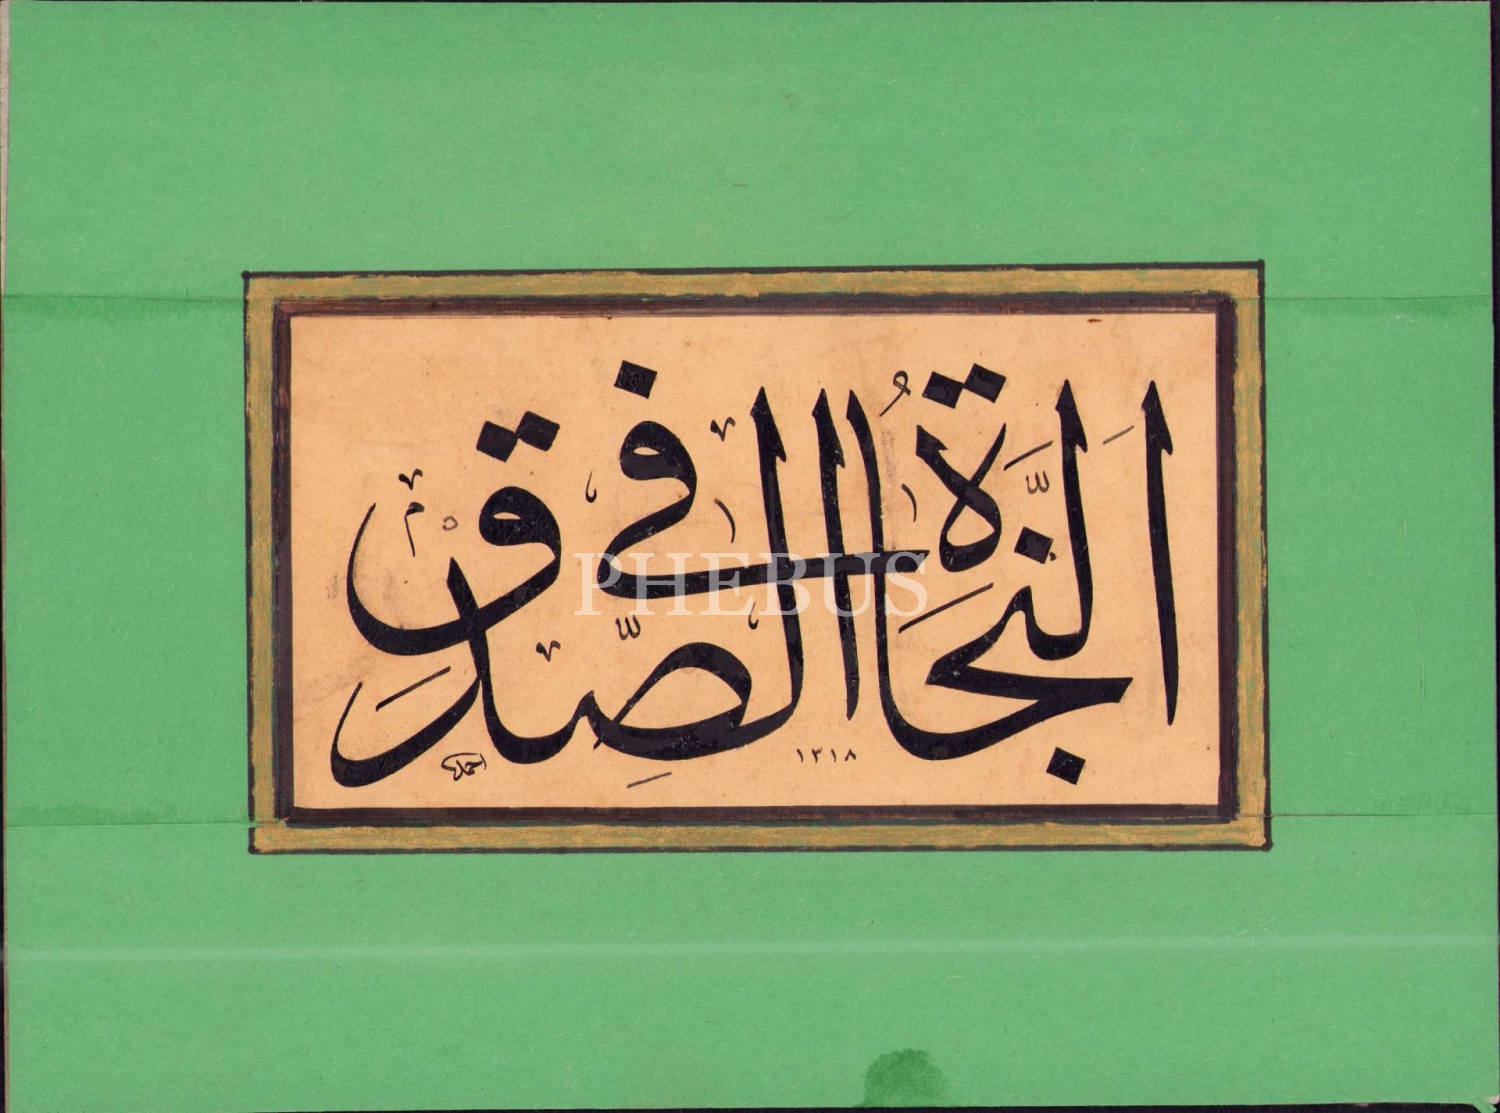 اَلنَّجَاةُ فِي الصِّدْقِ
١٣١٨
PHEBUS